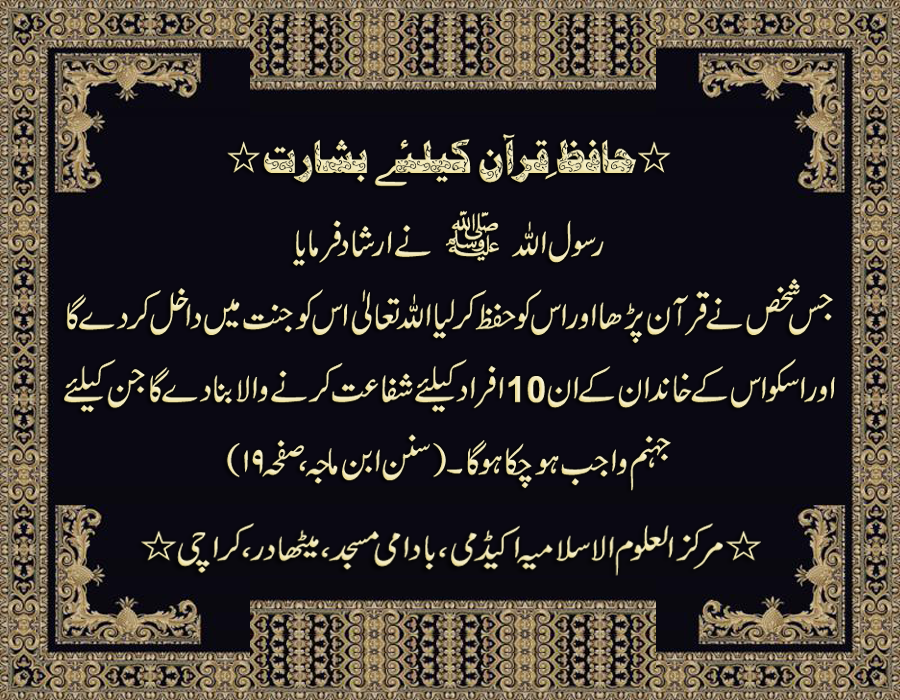 ☆حافظِ قرآن کیلئے بشارت☆
رسول اللہ ﷺ نے ارشاد فرمایا
جس شخص نے قرآن پڑھا اور اس کو حفظ کر لیا اللہ تعالیٰ اس کو جنت میں داخل کر دے گا
اور اسکو اس کے خاندان کے ان 10 افراد کیلئے شفاعت کرنے والا بنا دے گا جن کیلئے
جہنم واجب ہو چکا ہوگا ۔ (سنن ابن ماجہ، صفحہ ۱۹)
☆مرکز العلوم الاسلامیہ اکیڈمی، بادامی مسجد، میٹھادر، کراچی☆